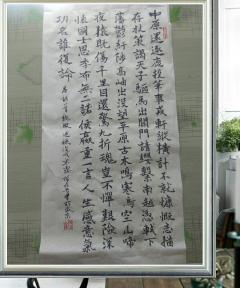 中原還逐鹿投筆事戎軒縱橫計不就慷慨志猶
存杖策謁天子驅馬出關門請纓繫南越憑軾下
藩鬱紆陟高岫出沒望平原古木鳴寒鳥空山啼
夜猿既傷千里目還驚九折魂豈不憚艱險深
懷國士恩季布無二諾侯嬴重一言人生感意氣
功名誰復論